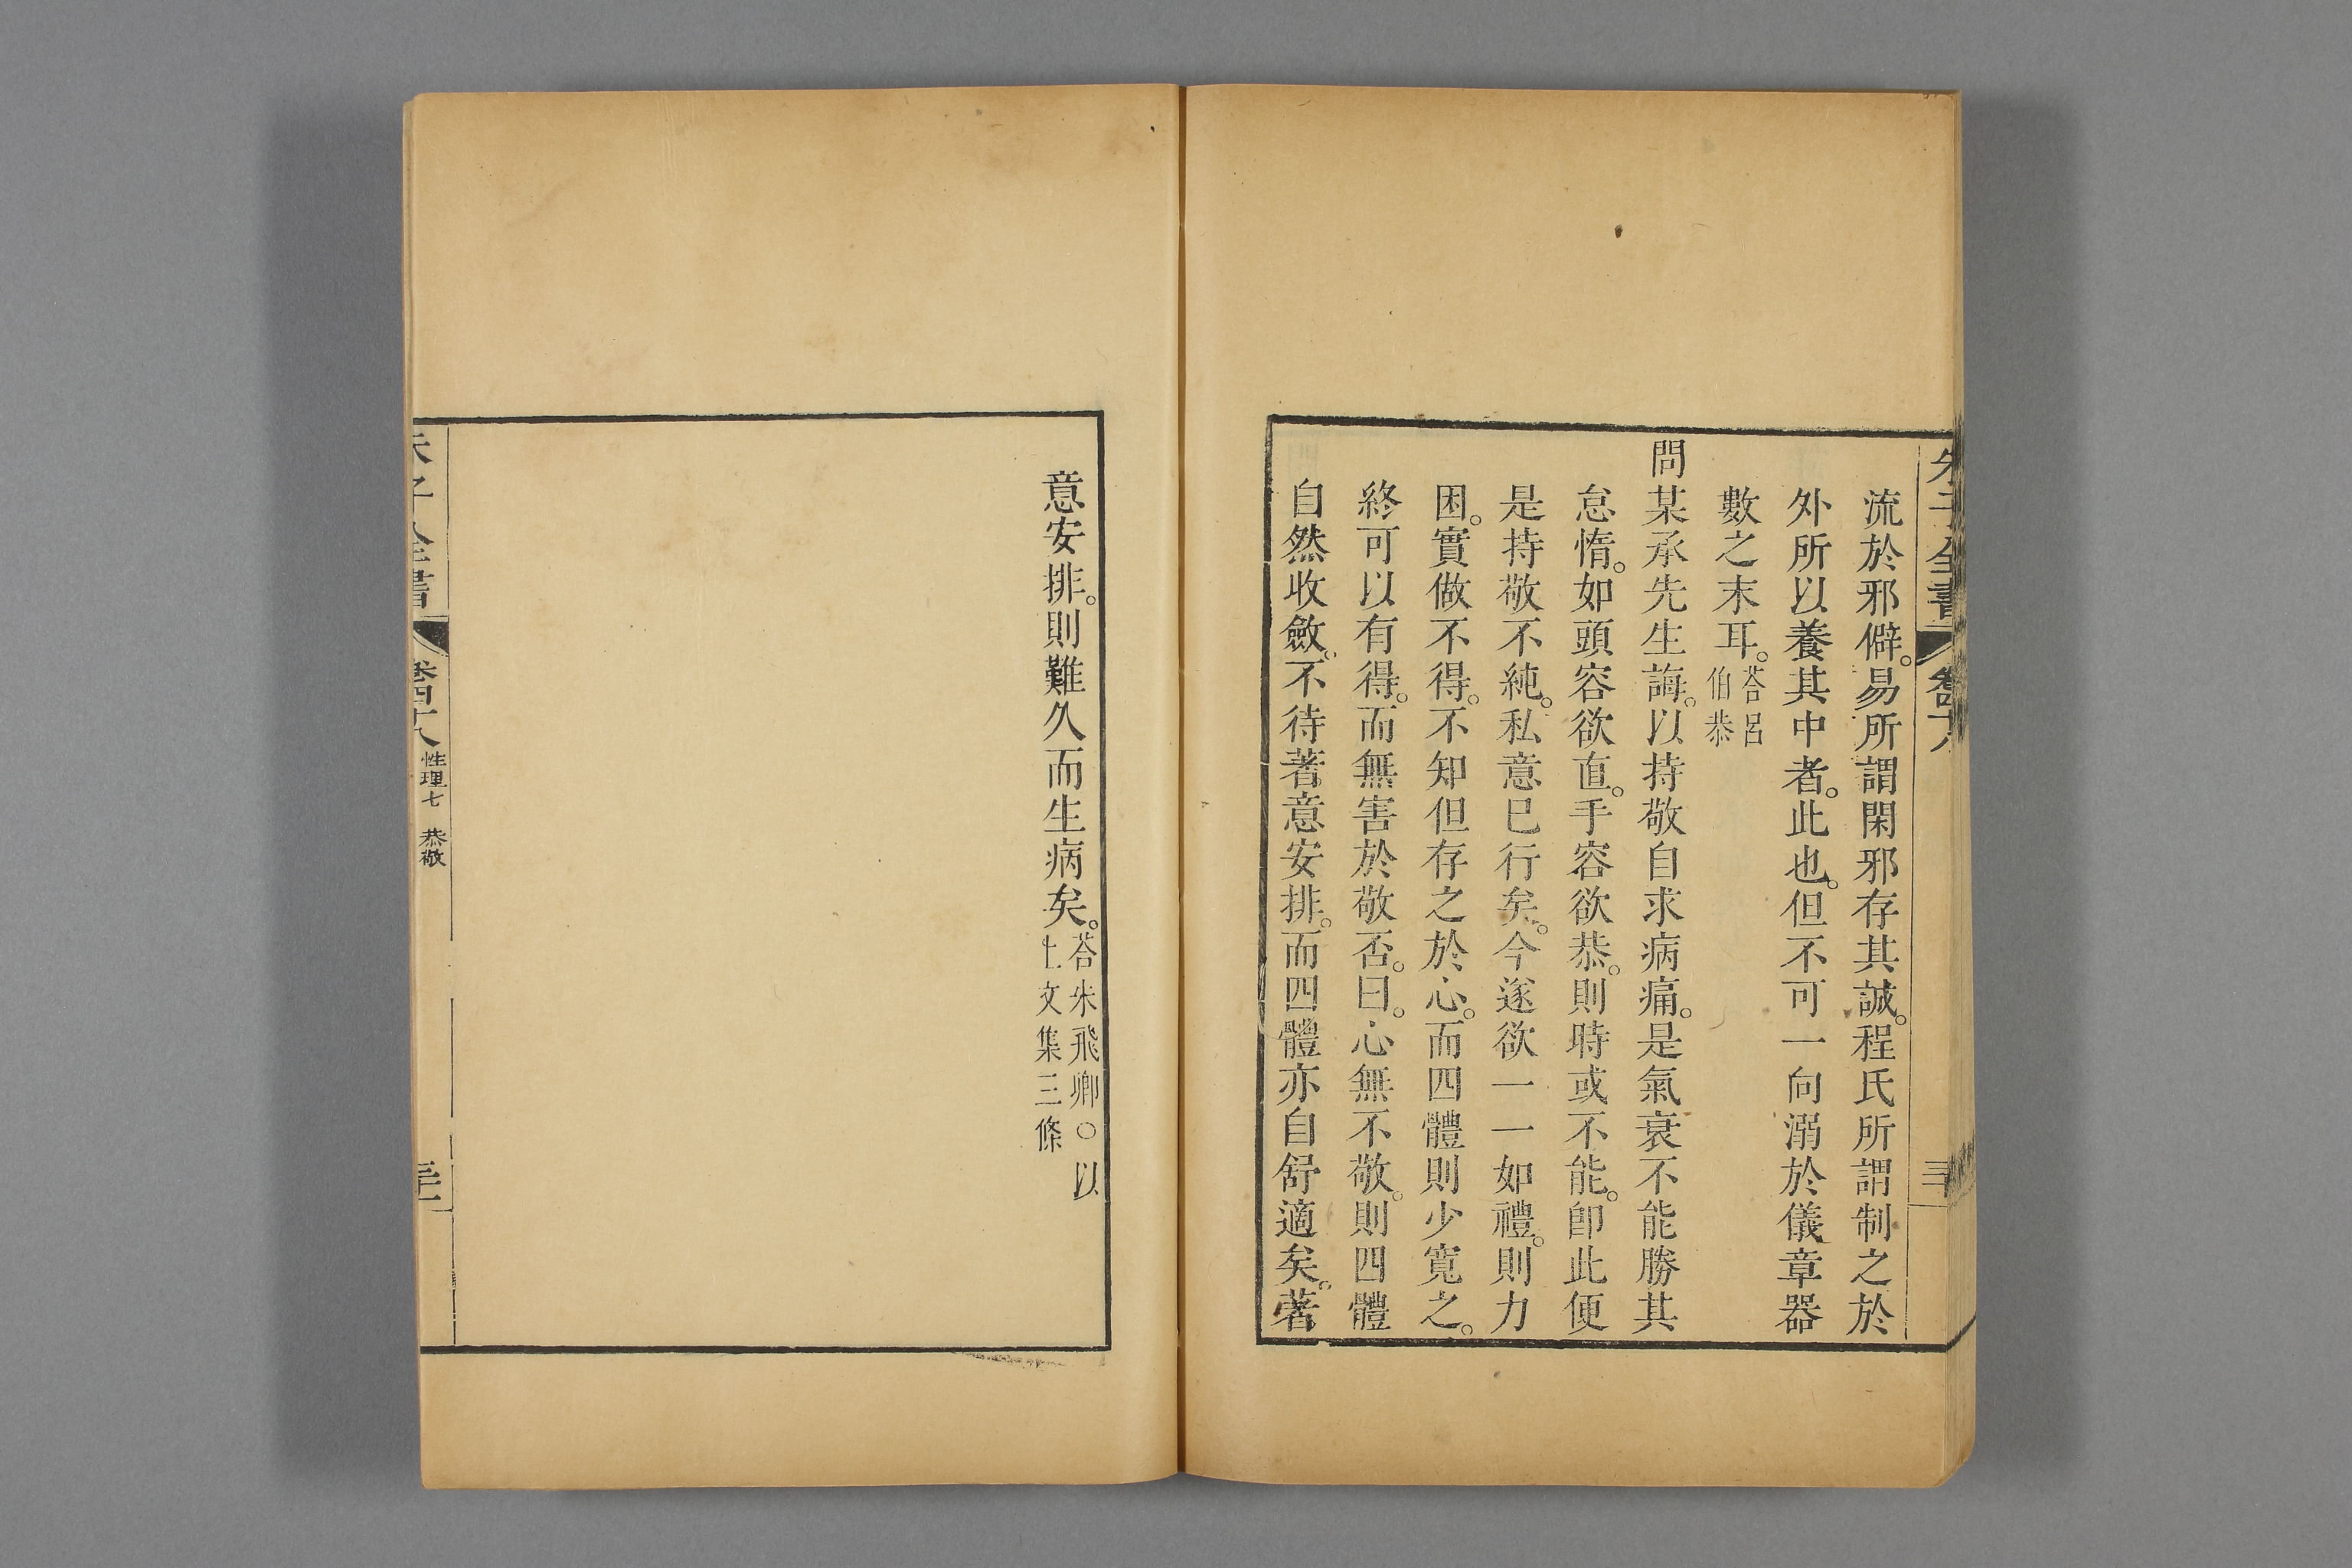 朱子全書
流於邪僻。易所謂閑邪存其誠。程氏所謂制之於
外所以養其中者。此也。但不可一向溺於儀章器
數之末耳。荅呂
伯恭
問某承先生誨。以持敬自求病痛。是氣衰不能勝其
怠惰。如頭容欲直。手容欲恭。則時或不能。卽此便
是持敬不純。私意已行矣。今遂欲一一如禮。則力
困。實做不得。不知但存之於心。而四體則少寬之。
終可以有得。而無害於敬否。曰。心無不敬。則四體
自然收斂。不待著意安排。而四體亦自舒適矣。著
意安排。則難久而生病矣。荅朱飛卿○以
上文集三條
性理七 恭敬